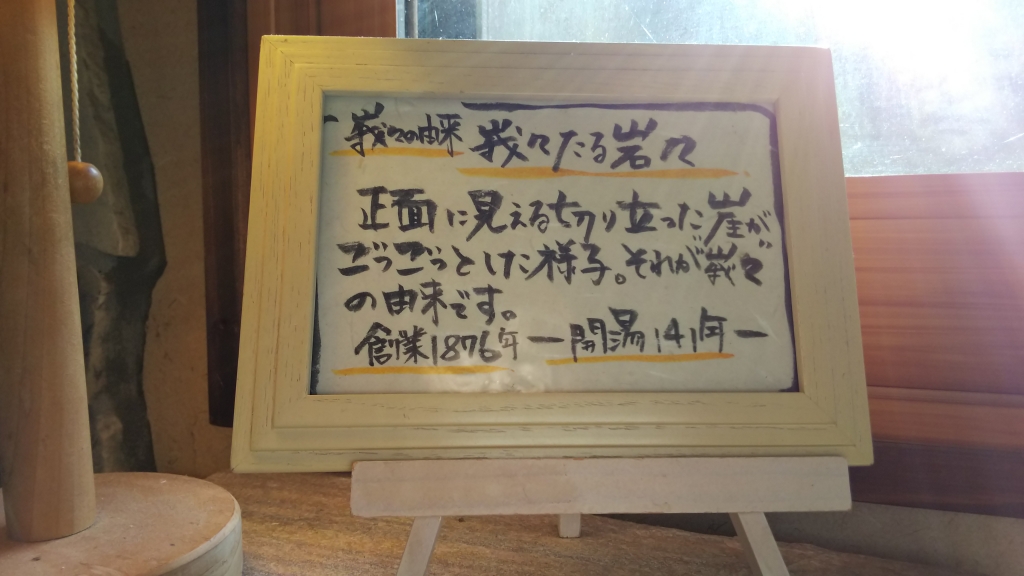 ー峩々の由来 峩々たる岩々
正面に見える切り立った崖が
ごつごつとした様子。それが峩々
の由来です。
創業1876年ー開湯141年ー